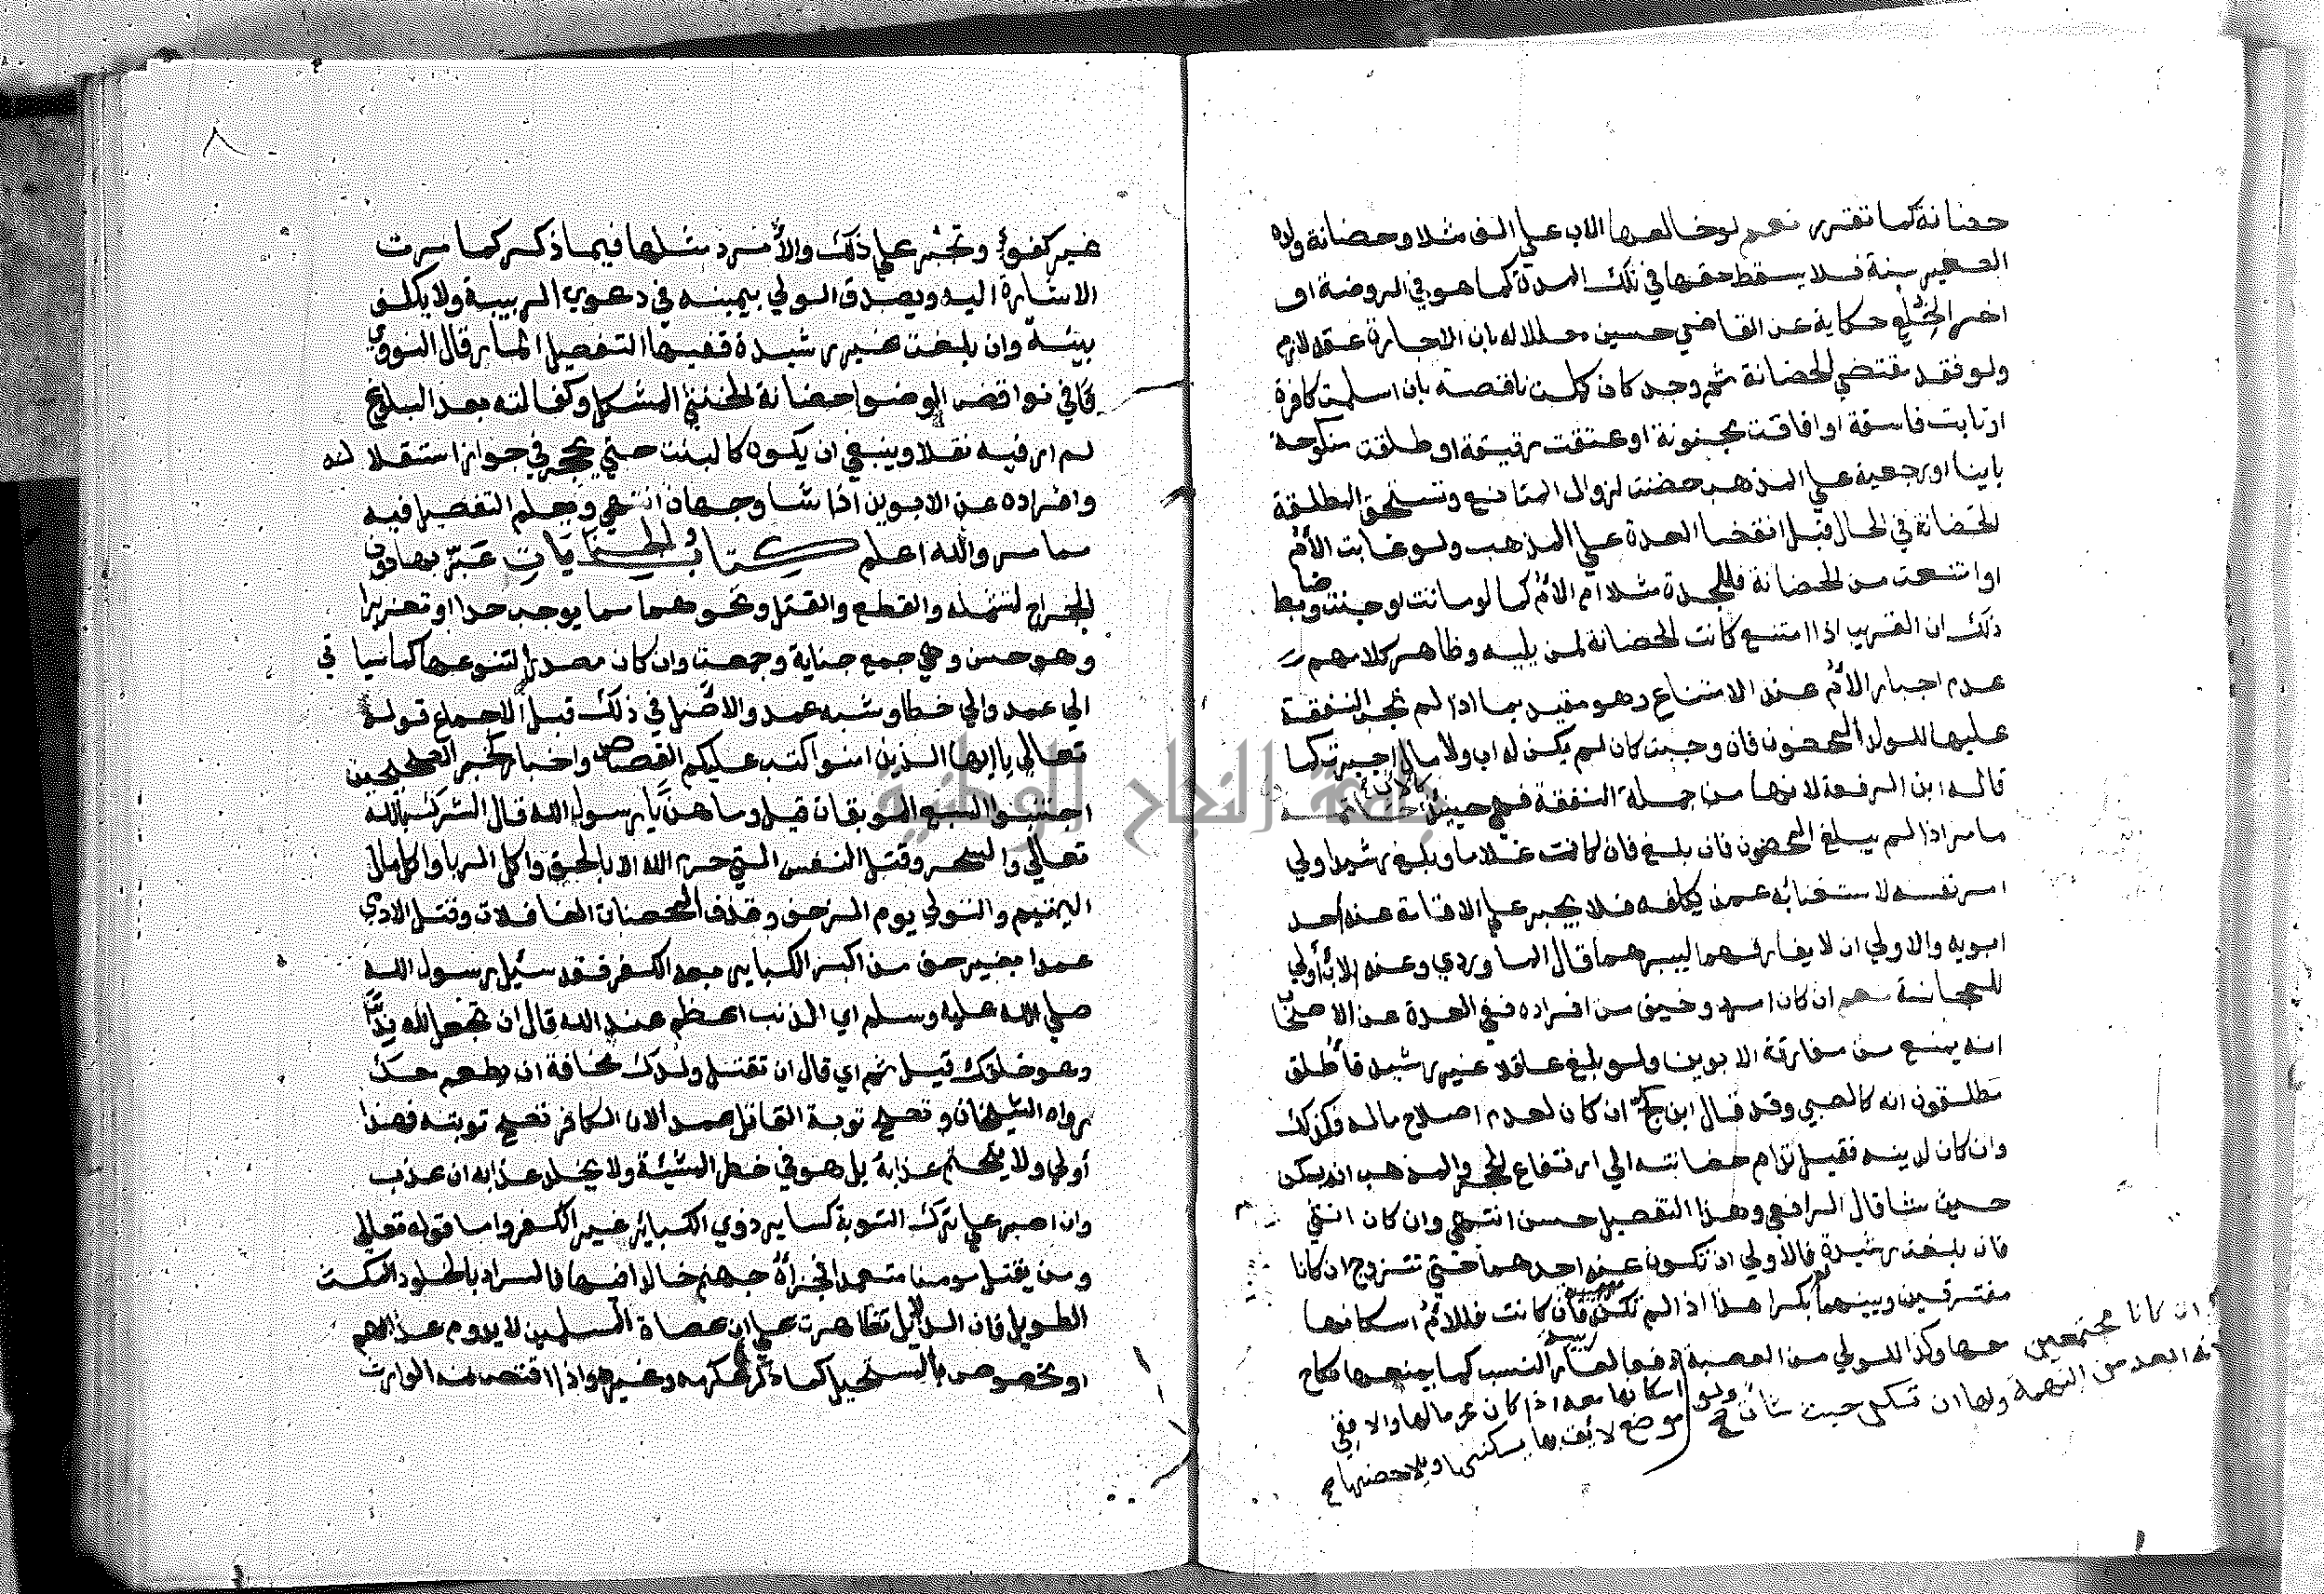 حضانة كما تقرر نعم لو خالعها الاب علي الف مثلا وحضانة ولده
الصغير سنة فلا يسقط حقها في تلك المدة كما هو في الروضة او
اخر الخلع حكاية عن القاضي حسين معللا له بان الاجارة عقد لازم
ولو فقد مقتضي الحضانة ثم وجد كان كملت ناقصة بان اسلمت كافرة
او تابت فاسقة او افاقت مجنونة او عتقت رقيقة او طلقت منكوحة
باينا او رجعية علي المذهب حضنت لزوال المانع وتستحق المطلقة
الحضانة في الحال قبل انقضا العدة علي المذهب ولو غابت الأم
او امتنعت من الحضانة فللجدة مثلا ام الأم كما لو ماتت او جنت وضابط
ذلك ان القريب اذا امتنع كانت الحضانة لمن يليه وظاهر كلامهم
عدم اجبار الأم عند الامتناع وهو مقيد بما اذا لم تجب النفقة
عليها للولد المحضون فان وجبت كان لم يكن له اب ولا مال اجبرت كما
قاله ابن الرفعة لانها من جملة النفقة فهي حينئذ كالاب
ما مر اذا لم يبلغ المحضون فان بلغ فان كانت غلاما وبلغ رشيدا ولي
امر نفسه لاستغنائه عمن يكلفه فلا يجبر علي الاقامة عند احد
ابويه والاولي ان لا يفارقهما ليبرهما قال الماوردي وعند الاب أولي
للمجانسة نعم ان كان امرد وخيف من انفراده ففي العدة عن الاصحاب
انه يمنع من مفارقة الابوين ولو بلغ عاقلا غير رشيد فأطلق
مطلقون انه كالصبي وقد قال ابن كج ان كان لعدم اصلاح ماله فكذلك
وان كان لدينه فقيل تدام حضانته الي ارتفاع الحجر والمذهب انه يسكن
حيث شا قال الرافعي وهذا التفصيل حسن انتهي وان كان انثي
فان بلغت رشيدة فالاولي ان تكون عند احدهما حتي تتزوج ان كانا
مفترقين وبينهما بكرا هذا اذا لم تكن ريبة فان كانت فللأم اسكانها
معها وكذا للولي من العصبة دفعا لعار النسب كما يمنعها نكاح
ان كانا مجتمعين
لانه ابعد من التهمة ولها ان تسكن حيث شات صح
ولو اسكانها معه اذا كان محرما لها والا ففي
موضع لائق بها يسكنها ويلاحضها صح
٨
غير كفوء وتجبر علي ذلك والأمرد مثلها فيما ذكر كما مرت
الاشارة اليه ويصدق الولي بيمينه في دعوي الريبة ولا يكلف
بينة وان بلغت غير رشيدة ففيها التفصيل المار قال النووي
في نواقض الوضوا حضانة الخنثي المشكل وكفالته بعد البلوغ
لم ار فيه نقلا وينبغي ان يكون كالبنت حتي يجري في جواز استقلاله
وانفراده عن الابوين اذا شا وجهان انتهي ويعلم التفصيل فيه
مما مر والله اعلم كتاب الجنايات عبر بها دون
الجراح لتشمله والقطع والقتل ونحوهما مما يوجب حدا او تعزيرا
وهو حسن وهي جمع جناية وجمعت وان كان مصدرا لتنوعها كما سيأتي
الي عمد والي خطا وشبه عمد والاصل في ذلك قبل الاجماع قوله
تعالي يا ايها الذين امنوا كتب عليكم القصاص واخبار كخبر الصحيحين
اجتنبوا السبع الموبقات قيل وما هن يا رسول الله قال الشرك بالله
تعالي والسحر وقتل النفس التي حرم الله الا بالحق واكل الربا واكل مال
اليتيم والتولي يوم الزحف وقذف المحصنات الغافلات وقتل الادمي
عمدا بغير حق من اكبر الكباير بعد الكفر فقد سئل رسول الله
صلي الله عليه وسلم اي الذنب اعظم عند الله قال ان تجعل لله ندا
وهو خلقك قيل ثم اي قال ان تقتل ولدك مخافة ان يطعم معك
رواه الشيخان وتصح توبة القاتل عمدا لان الكافر تصح توبته فهذا
أولي ولا يتحتم عذابه بل هو في خطر المشيئة ولا يخلد عذابه ان عذب
وان اصر علي ترك التوبة كساير ذوي الكبائر غير الكفر واما قوله تعالي
ومن يقتل مومنا متعمدا فجزاؤه جهنم خالدا فيها فالمراد بالخلود المكث
الطويل فان الدلايل تظاهرت علي ان عصاة المسلمين لا يدوم عذابهم
او مخصوص بالمستحيل كما ذكره عكرمة وغيره واذا اقتص منه الوارث